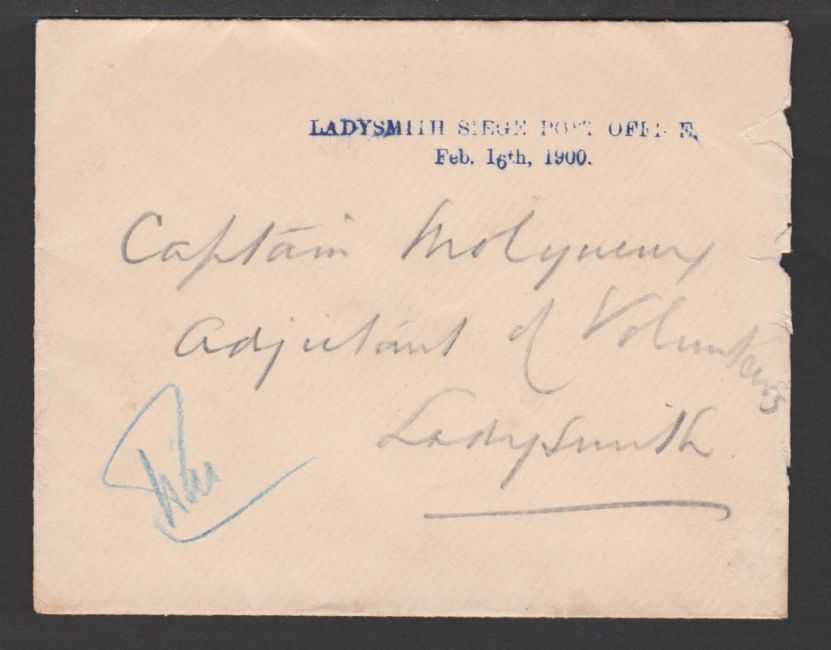 LADYSMITH SIEGE POST OFFICE,
Feb. 16th, 1900.
Captain Molyneux
Adjutant of Volunteers
Ladysmith